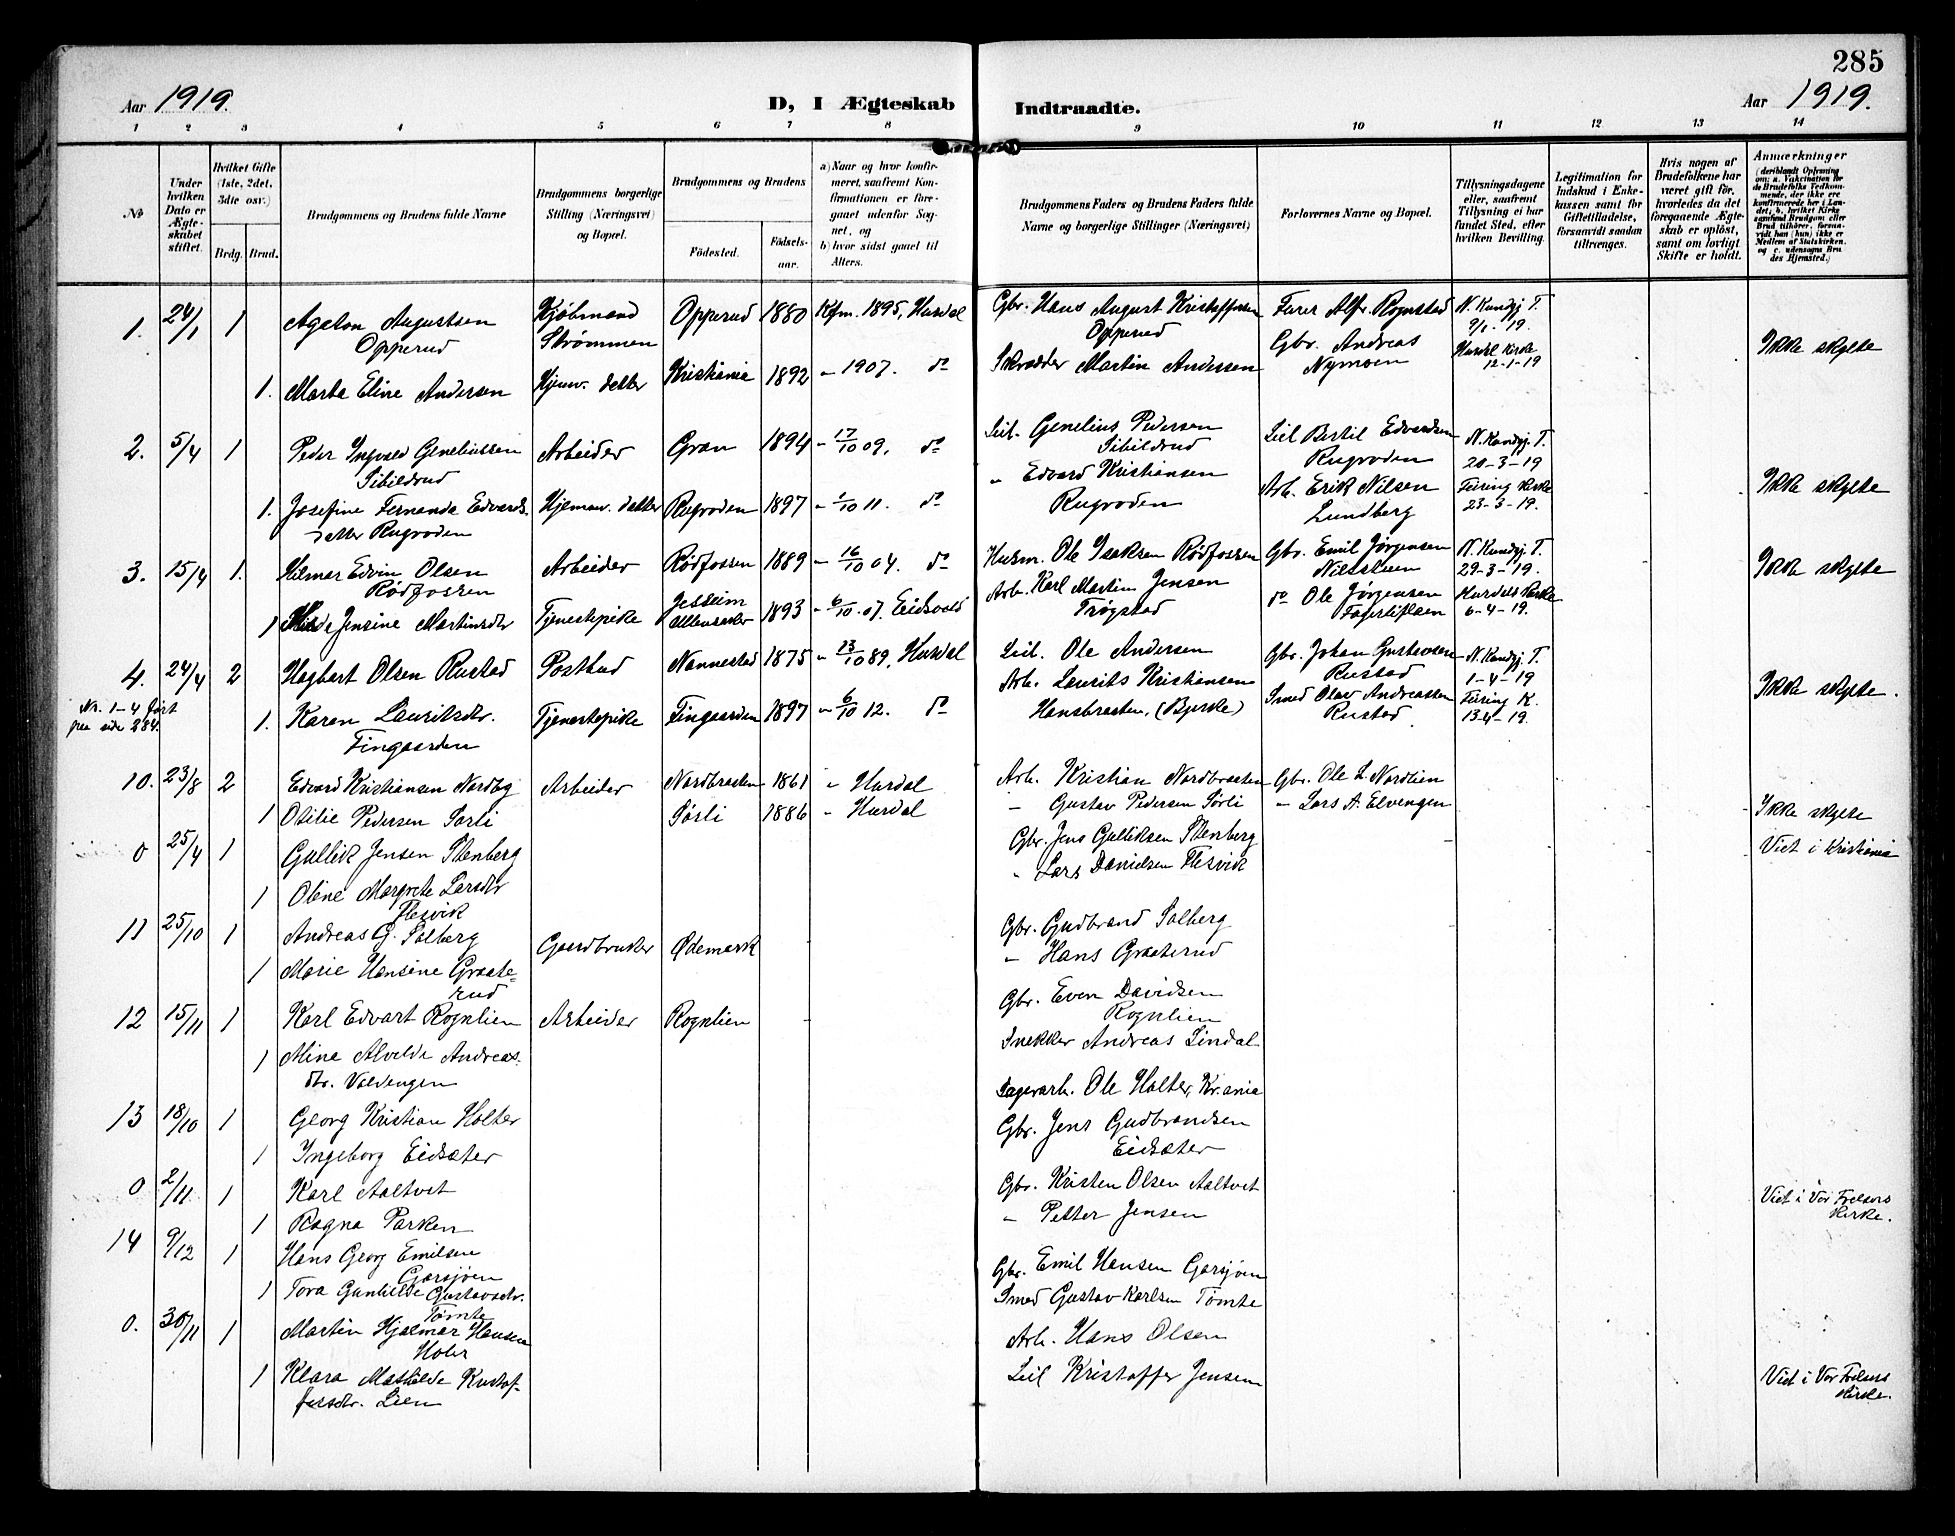 285
Aar 1919.
D, I Ægteskab Indtraadte.
Aar 1919.
1 2 3 4 5 6 7 8 9 10 11 12 13 14
No
Under hvilken Dato er Ægteskabet stiftet.
Hvilket Gifte (1ste, 2det, 3die osv.)
Brdg. Brud.
Brudgommens og Brudens fulde Navne
Brudgommens borgerlige Stilling (Næringsvei) og Bopæl.
Brudgommens og Brudens
Fødested.
Fødselsaar.
a) Naar og hvor konfirmeret, saafremt Konfirmationen er foregaaet udenfor Sognet, og
b) hvor sidst gaaet til Alters.
Brudgommens Faders og Brudens Faders fulde Navne og borgerlige Stillinger (Næringsvei)
Forlovernes Navne og Bopæl.
Tillysningsdagene eller, saafremt Tillysning ei har fundet Sted, efter hvilken Bevilling.
Legitimation for Indskud i Enkekassen samt for Giftetilladelse, forsaavidt saadan tiltrænges.
Hvis nogen af Brudefolkene har været gift før, hvorledes da det foregaaende Ægteskab er opløst, samt om lovligt Skifte er holdt.
Anmerkninger
1. 24/1 1 Agaton Augustsen Opperud Kjøbmand Strømmen Opperud 1880 Kfm. 1895, Hurdal Gbr. Hans August Kristoffersen Opperud Alfr. Rognstad N. Kundgj. T. 9/1-19.
1. Marta Eline Andersen Hjemv. datter Kristiania 1892 " 1907. do Skrædder Martin Andersen Gbr. Andreas Nymoen Hurdal Kirke 12-1-19 Ikke skylte
2. 5/4 1 Peder Ingvald Geneliussen Sibildrud Arbeider Gran 1894 " 17/10 09. do Leil. Genelius Pedersen Sibildrud Leil Bertil Edvardsen Rugroden N. Kundgj. T. 20-3-19
1. Josefine Fernanda Edvardsdatter Rugroden Hjemv. datter Rugroden 1897 " 1/10 11. do " Edvard Kristiansen Rugroden Arb. Erik Nilsen Lundberg Feiring Kirke 23-3-19. Ikke skylte
3. 15/4 1. Hilmar Edvin Olsen Rødfossen Arbeider Rødfossen 1889 " 16/10 04. do Husm. Ole Isaksen Rødfossen Gbr. Emil Jørgensen N. Kundgj. T. 29-3-19. Ikke skylte
1 Jensine Martinsdtr Tjenestepike Jessheim Ullensaker 1893 " 6/10. 07. Eidsvold Arb. Karl Martin Jensen Trøgstad do Ole Jørgensen Hurdals Kirke 6-4-19.
4. 24/4 2 Hagbart Olsen Rustad Postbud Nannestad 1875 " 13/10 89, Hurdal Leil. Ole Andersen Gbr. Johan Gustavsen Rustad N. Kundgj. T. 1-4-19
Nr. 1-4 ført paa side 284.
1. Karen Lauritsdtr. Fingaarden Tjenestepike Fingaarden 1897 " 6/10 12. do Arb. Laurits Kristiansen Hansbraaten, (Bjerke) Smed Olav Andreassen Rustad Feiring K. 13-4-19. Ikke skylte.
10. 23/8 2 Edvard Kristiansen Nordby Arbeider Nordbraaten 1861 " Hurdal Arb. Kristian Nordbraaten Gbr. Ole L. Nordlien
1 Otilie Pedersen Sørli Sørli 1886 " Hurdal " Gustav Pedersen Sørli " Lars A. Elvengen Ikke skylte
0 25/4 1 Gullik Jensen Stenberg Gbr. Jens Gulliksen Stenberg Viet i Kristiania
1 Oline Margrete Larsdtr Flesvik " Lars Danielsen Flesvik
11 25/10 1 Andreas G. Solberg Gaardbruker Ødemark Gbr. Gudbrand Solberg
1 Marie Hansine Graaterud " Hans Graaterud
12 15/11 1 Karl Edvart Rognlien Arbeider Rognlien Gbr. Even Davidsen Rognlien
1 Mina Alvilde Andreasdtr. Valdengen Snekker Andreas Lindal
13 18/10 1 Georg Kristian Holter Lagerarb. Ole Holter, Kr.ania
1 Ingeborg Eidsæter Gbr. Jens Gudbrandsen Eidsæter
0 2/11 1 Karl Aaltvet Gbr. Kristen Olsen Aaltvet Viet i Vor Frelsers Kirke.
1 Ragna Parken " Petter Jensen
14 9/12 1 Hans Georg Emilsen Garsjøen Gbr. Emil Hansen Garsjøen
1 Tora Gunhilde Gustavsdtr. Tømte Smed Gustav Karlsen Tømte
0. 30/11 1 Martin Hjalmar Hansen Holer Arb. Hans Olsen
1 Klara Mathilde Kristoffersdtr. Lien Leil Kristoffer Jensen Viet i Vor Frelsers Kirke.